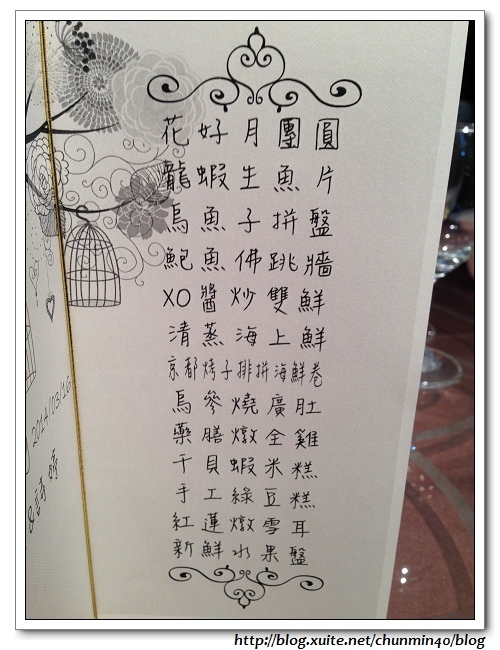 花好月團圓
龍蝦生魚片
烏魚子拼盤
鮑魚佛跳牆
XO醬炒雙鮮
清蒸海上鮮
京都烤子排拼海鮮卷
烏參燒廣肚
藥膳燉全雞
干貝蝦米糕
手工綠豆糕
紅蓮燉雪耳
新鮮水果盤
2014/03/16
http://blog.xuite.net/chunmin40/blog